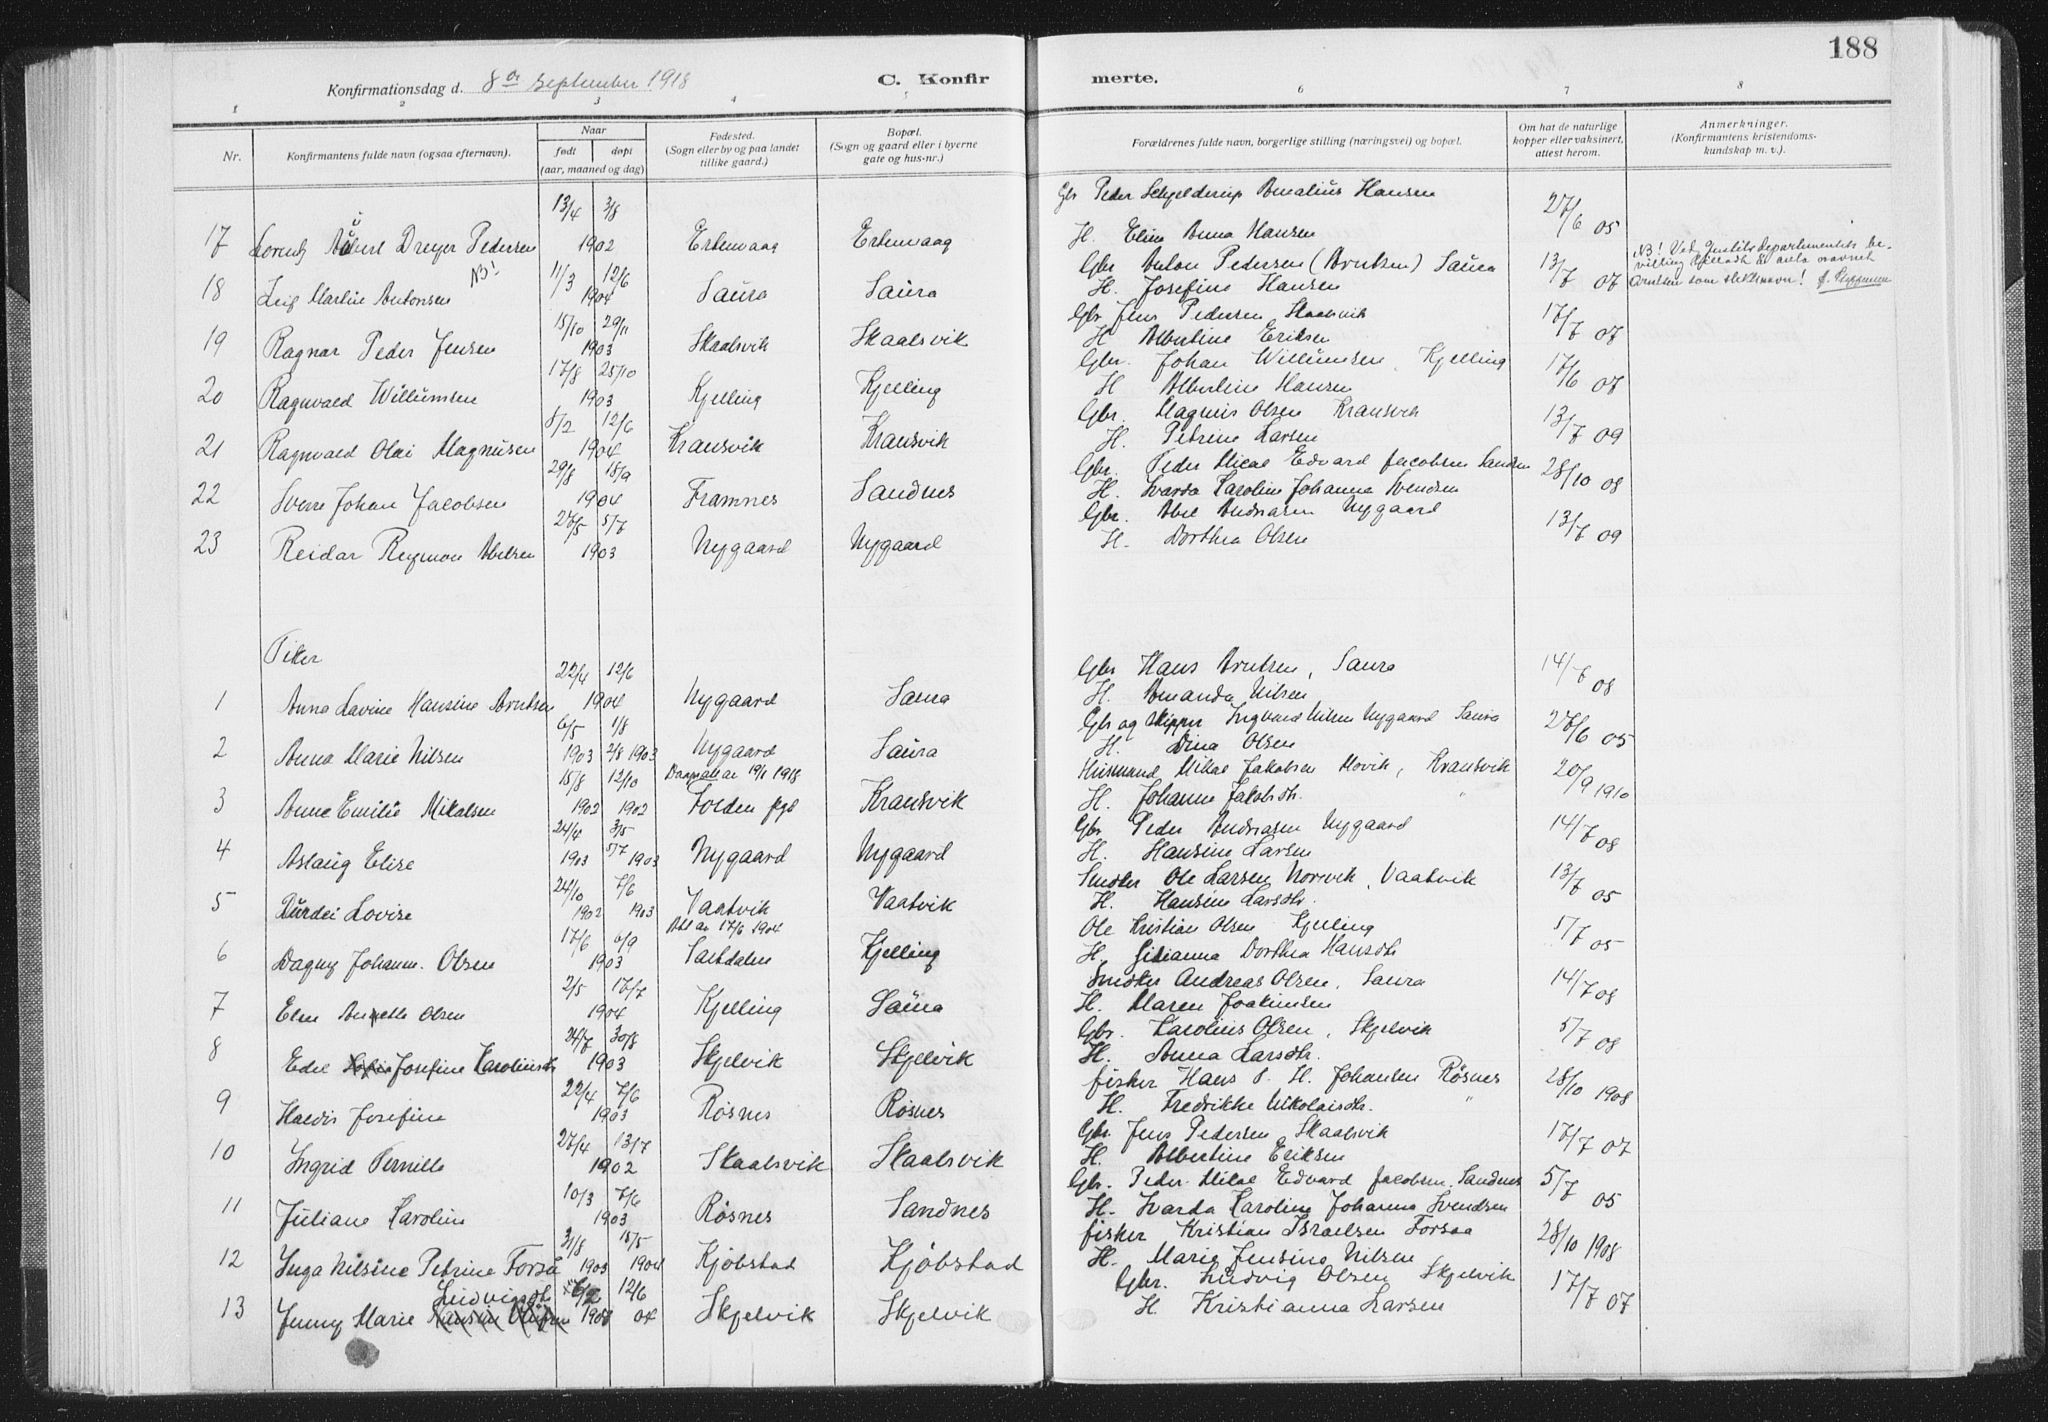 188
Konfirmationsdag d. 8de September 1918
C. Konfirmerte.
1 2 3 4 5 6 7 8
Nr.
Konfirmantens fulde navn (ogsaa efternavn).
Naar
født døpt
(aar, maaned og dag)
Fødested.
(Sogn eller by og paa landet
tillike gaard.)
Bopæl.
(Sogn og gaard eller i byerne
gate og hus-nr.)
Forældrenes fulde navn, borgerlige stilling (næringsvei) og bopæl.
Om hat de naturlige
kopper eller vaksinert,
attest herom.
Anmerkninger.
(Konfirmantens kristendoms-
kundskap m. v.).
13/4 3/8 Gbr Peder Schjelderup Amalius Hansen 27/6 05
17 Lorentz Dreyer Pedersen 1902 Ertenvaag Ertenvaag H. Eline Anna Hansen
NB! 11/3 12/6 Gbr Anton Pedersen (Arntsen) Saura 13/7 07 NB! Ved Justitsdepartementets be-
18 Leif Martin Antonsen 1904 Saura Saura H. Josefine Hansen
15/10 29/11 Gbr Jens Pedersen Skaalsvik 17/7 07
19 Ragnar Peder Jensen 1903 Skaalsvik Skaalsvik H Albertine Eriksen
17/8 25/10 Gbr. Johan Willumsen, Kjelling 17/6 07
20 Ragnvald Willumsen 1903 Kjelling Kjelling H Albertine Hansen
8/2 12/6 Gbr. Magnus Olsen Kransvik 13/7 09
21 Ragnvald Olai Magnusen 1904 Kransvik Kransvik H. Petrine Larsen
29/8 18/9 Gbr. Peder Mical Edvard Jacobsen Sandnes 28/10 08
22 Sverre Johan Jacobsen 1904 Framnes Sandnes H. Svarda Karoline Johanna Svendsen
27/5 5/7 Gbr. Abel Andreasen Nygaard 13/7 09
23 Reidar Reymon Abelsen 1903 Nygaard Nygaard H. Dorthea Olsen
Piker
22/4 12/6 Gbr Hans Arntsen, Saura 14/7 08
1 Anna Lavine Hansine Arntsen 1904 Nygaard Saura H. Amanda Nilsen
6/5 1/8 Gbr og skipper Ingvard Nilsen Nygaard Saura 27/6 05
2 Anna Marie Nilsen 1903 2/8 1903 Nygaard Saura H. Dina Olsen
15/8 12/10 Daapatt av 19/1 1918 Husmand Mikal Jakobsen Movik, Kransvik 20/9 1910
3 Anne Emilie Mikalsen 1902 1902 Folden pgl Kransvik H. Johanne Jakobsdtr. "
24/4 3/5 Gbr Peder Andreasen Nygaard 14/7 08
4 Aslaug Elise 1903 5/7 1903 Nygaard Nygaard H. Hansine Larsen
24/10 7/6 Snedker Ole Larsen Norvik, Vaatvik 13/7 05
5 Aurdei Lovise 1902 1903 Vaatvik Vaatvik H. Hansine Larsdtr.
17/6 6/9 Att av 17/6 1904 Ole Kristian Olsen Kjelling 5/7 05
6 Dagny Johanne. Olsen 1903 Saltdalen Kjelling H. Julianna Dorthea Hansdtr
2/5 17/7 Snedker Andreas Olsen, Saura 14/7 08
7 Elen Anette Olsen 1904 Kjelling Saura H. Maren Joakimsen
24/7 30/8 Gbr. Karolius Olsen, Skjelvik 5/7 08
8 Edel Josefine Karoliusdtr 1903 Skjelvik Skjelvik H. Anna Larsdtr.
22/4 7/6 fisker Hans P. H. Johansen Røsnes 28/10 1908
9 Haldis Josefine 1903 Røsnes Røsnes H. Fredrikke Nikolaisdtr. "
27/4 13/7 Gbr. Jens Pedersen Skaalsvik 17/7 07
10 Ingrid Pernille 1902 Skaalsvik Skaalsvik H. Albertine Eriksen
10/3 7/6 Gbr. Peder Mical Edvard Jacobsen. Sandnes 5/7 05
11 Juliane Karoline 1903 Røsnes Sandnes H. Svarda Karoline Johanna Svendsen
31/8 15/5 fisker Kristian Israelsen Forsaa 28/10 1908
12 Inga Nilsine Petrine Forså 1903 1904 Kjøbstad Kjøbstad H. Marie Jensine Nilsen
Ludvigsdtr 12/6 Gbr. Ludvig Olsen Skjelvik 17/7 07
13 Jenny Marie 04 Skjelvik Skjelvik H. Kristianna Larsen